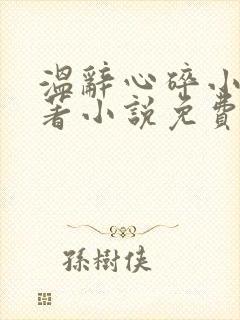 温辭心碎小
著小說免費
孫樹俠